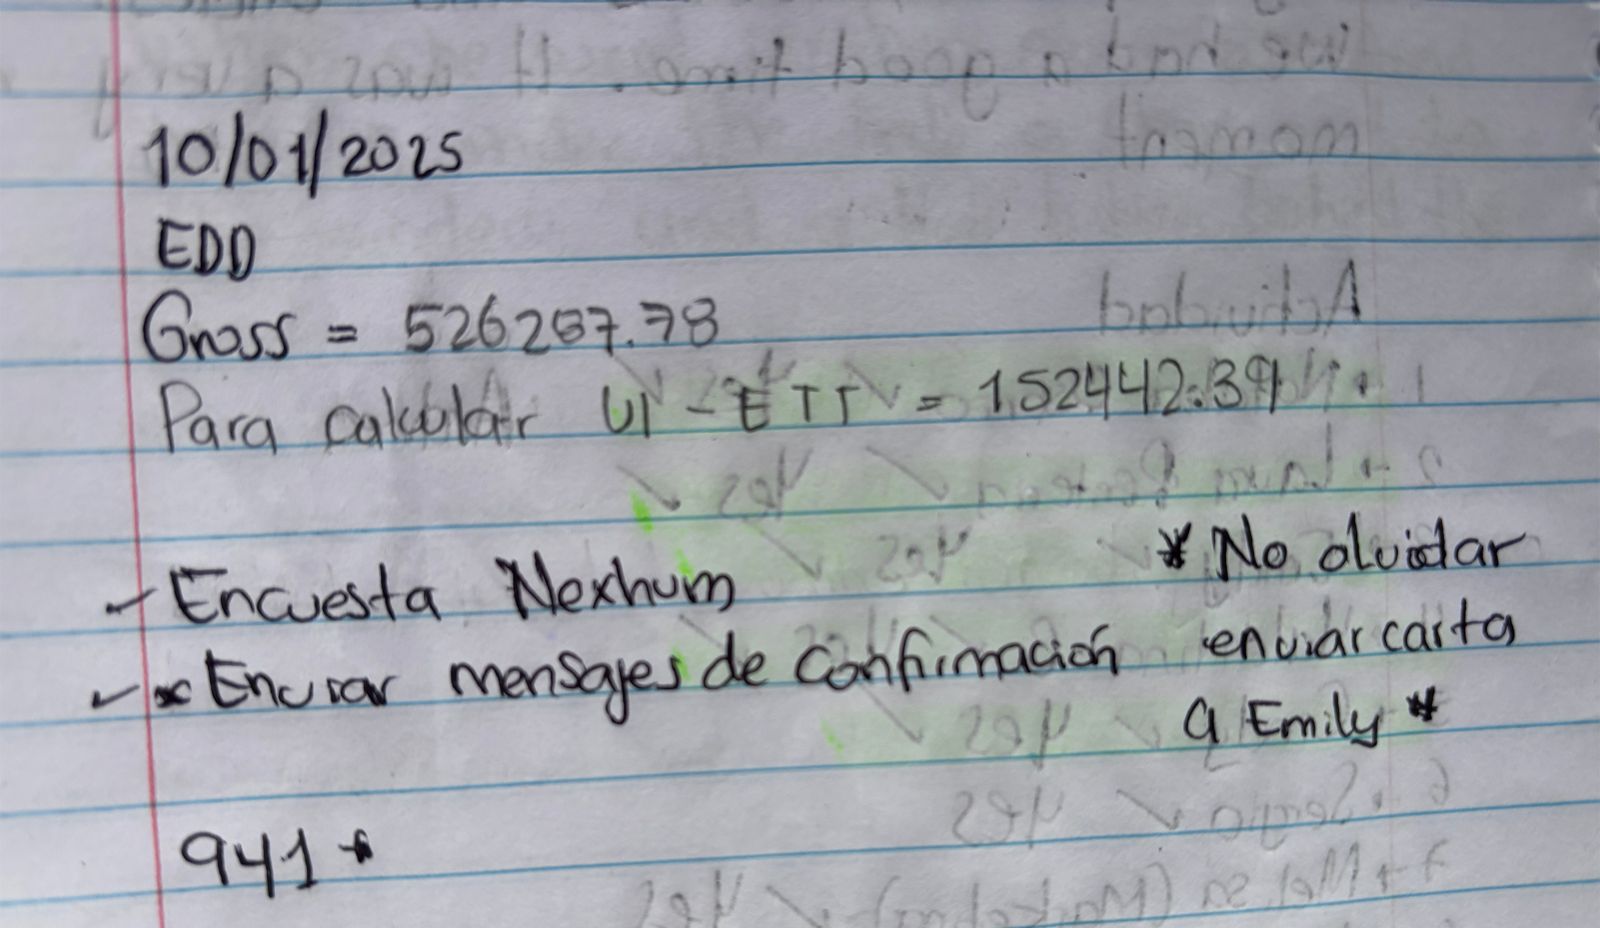 10/01/2025
EDD
Gross = 526267.78
Para calcular UI - ETT = 152442.39
- Encuesta Nexhum
* No olvidar
Enviar mensajes de confirmación
enviar carta
a Emily *
941 *